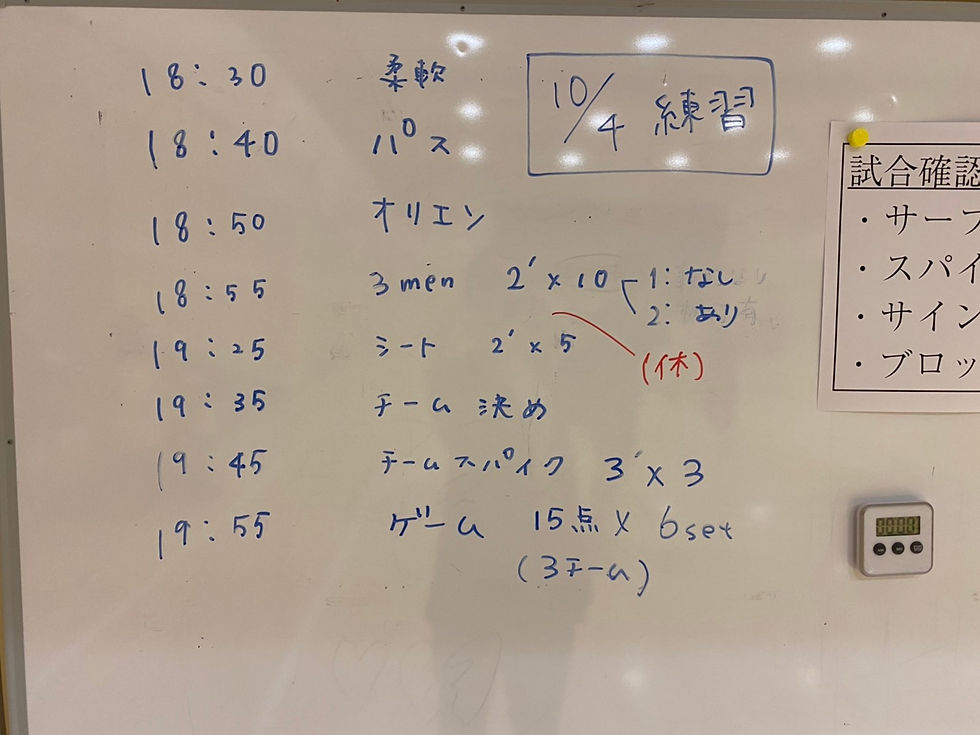 10/4 練習
18:30 柔軟
18:40 パス
18:50 オリエン
18:55 3 men 2' × 10 1: なし
2: あり
(休)
19:25 シート 2' × 5
19:35 チーム 決め
19:45 チームスパイク 3' × 3
19:55 ゲーム 15点 × 6set
(3チーム)
試合確認
・サーブ
・スパイ
・サイン
・ブロッ